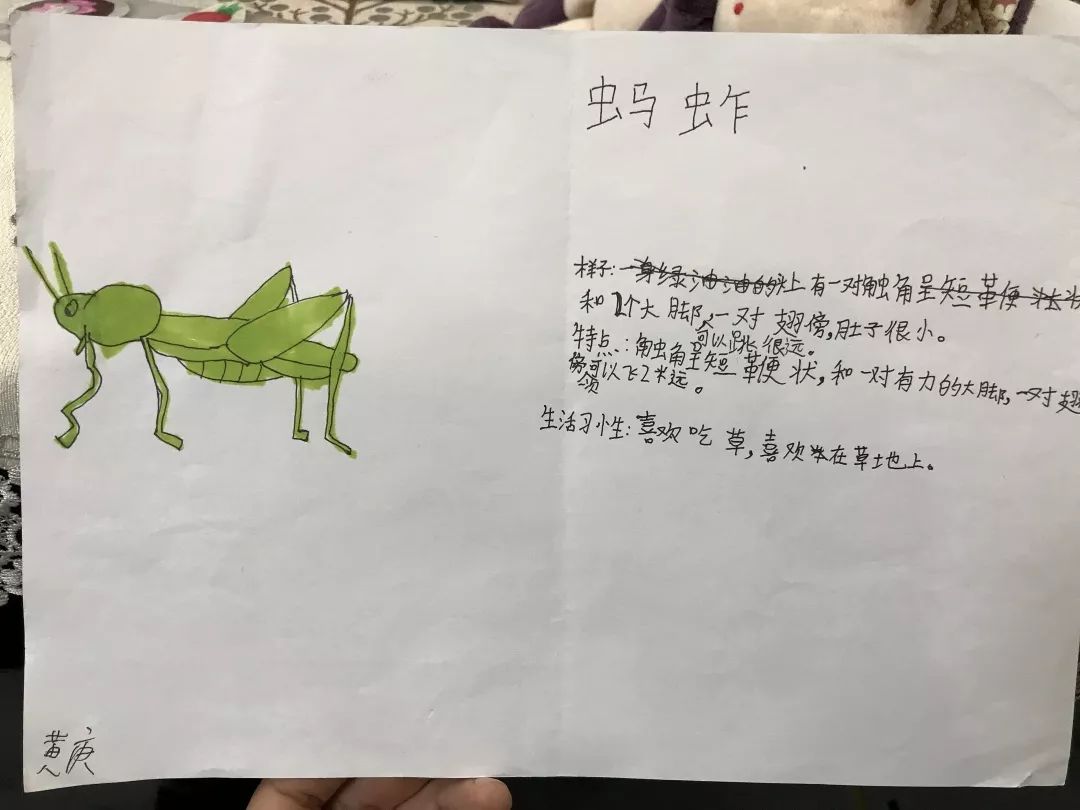 蚂蚱
样子:一身绿油油的头上有一对触角呈短革便状
和2个大脚,一对翅傍,肚子很小。
可以跳很远。
特点:触角呈短鞭状,和一对有力的大脚,一对翅
傍可以飞2米远。
生活习性:喜欢吃草,喜欢坐在草地上。
黄庚